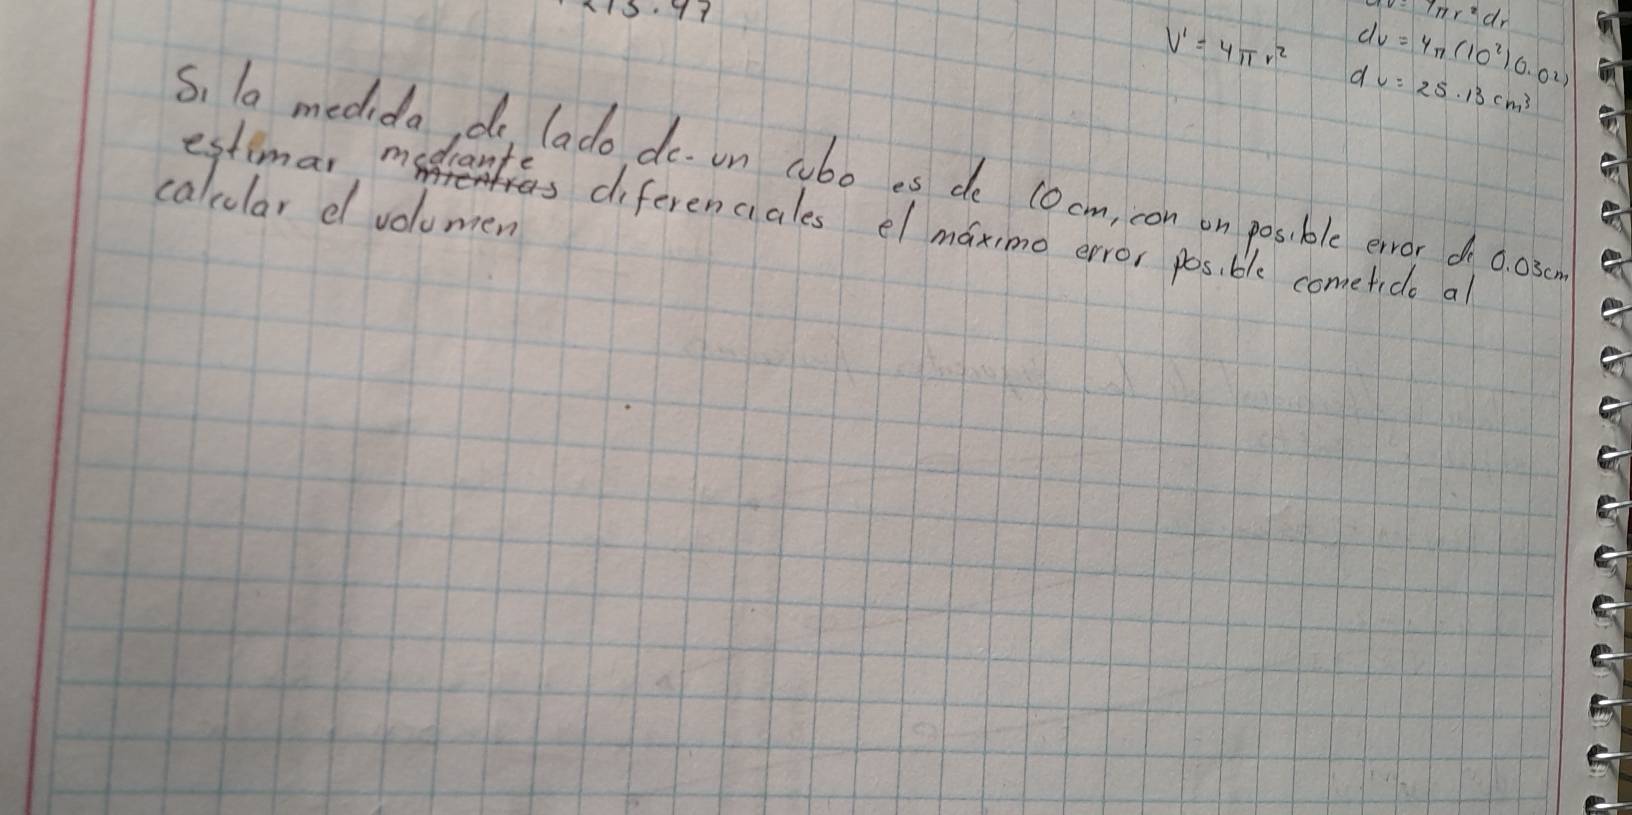 213.97
dv = 4πr²dr
V' = 4πr²
dv = 4π(10²)(0.02)
dv = 25.13 cm³
Si la medida de lado de un cubo es de 10 cm, con un posible error de 0.03cm
estimar mediante diferenciales el máximo error posible cometido al
calcular el volumen